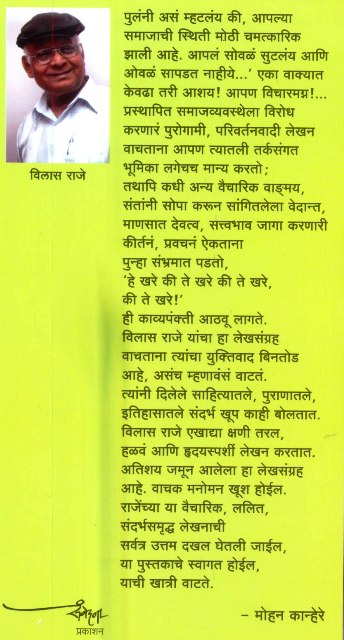 विलास राजे
पुलंनी असं म्हटलंय की, आपल्या
समाजाची स्थिती मोठी चमत्कारिक
झाली आहे. आपलं सोवळं सुटलंय आणि
ओवळं सापडत नाहीये...' एका वाक्यात
केवढा तरी आशय! आपण विचारमग्न!...
प्रस्थापित समाजव्यवस्थेला विरोध
करणारं पुरोगामी, परिवर्तनवादी लेखन
वाचताना आपण त्यातली तर्कसंगत
भूमिका लगेचच मान्य करतो;
तथापि कधी अन्य वैचारिक वाङ्मय,
संतांनी सोपा करून सांगितलेला वेदान्त,
माणसात देवत्व, सत्त्वभाव जागा करणारी
कीर्तनं, प्रवचनं ऐकताना
पुन्हा संभ्रमात पडतो,
'हे खरे की ते खरे की ते खरे,
की ते खरे!'
ही काव्यपंक्ती आठवू लागते.
विलास राजे यांचा हा लेखसंग्रह
वाचताना त्यांचा युक्तिवाद बिनतोड
आहे, असंच म्हणावंसं वाटतं.
त्यांनी दिलेले साहित्यातले, पुराणातले,
इतिहासातले संदर्भ खूप काही बोलतात.
विलास राजे एखाद्या क्षणी तरल,
हळवं आणि हृदयस्पर्शी लेखन करतात.
अतिशय जमून आलेला हा लेखसंग्रह
आहे. वाचक मनोमन खूश होईल.
राजेंच्या या वैचारिक, ललित,
संदर्भसमृद्ध लेखनाची
सर्वत्र उत्तम दखल घेतली जाईल,
या पुस्तकाचे स्वागत होईल,
याची खात्री वाटते.
– मोहन कान्हेरे
प्रकाशन